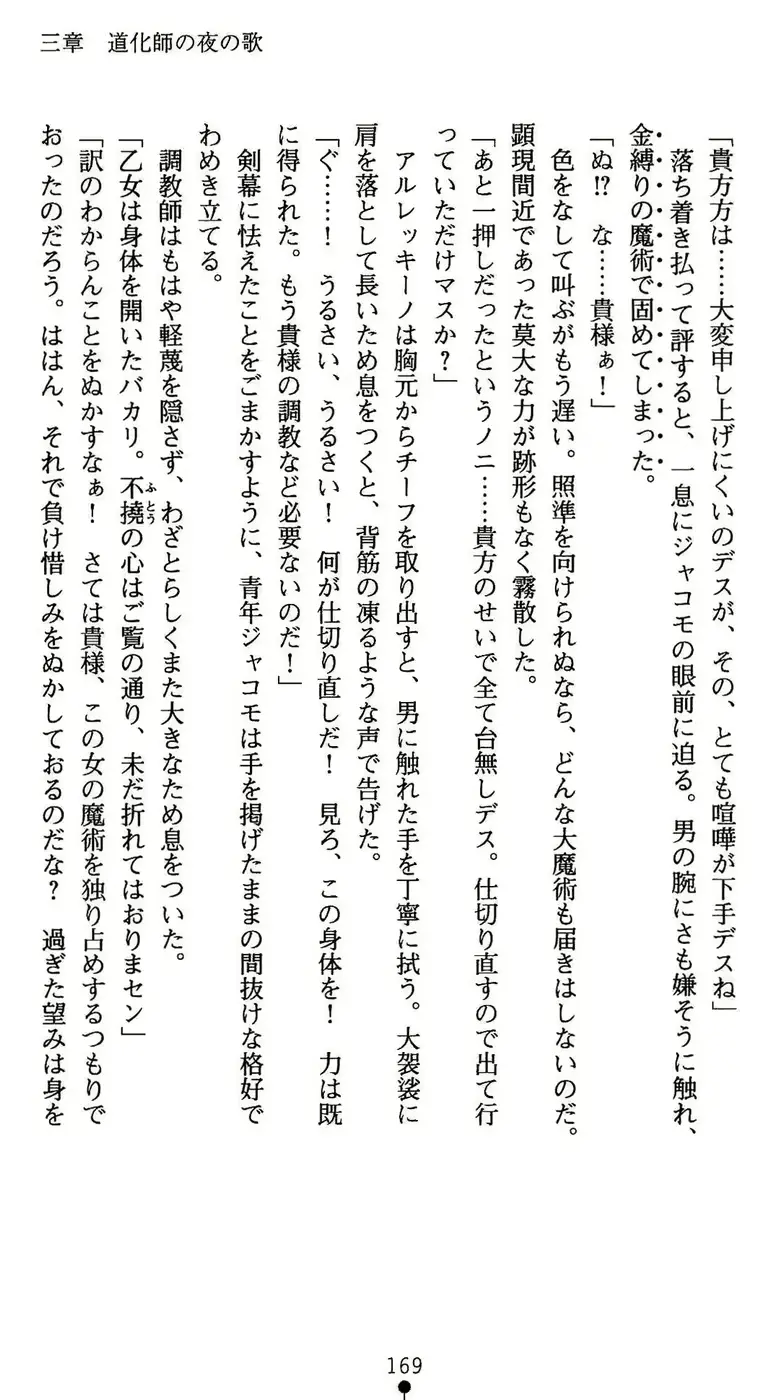 三章　道化師の夜の歌
「貴方方は……大変申し上げにくいのデスが、その、とても喧嘩が下手デスね」
　落ち着き払って評すると、一息にジャコモの眼前に迫る。男の腕にさも嫌そうに触れ、
金縛りの魔術で固めてしまった。
「ぬ!?　な……貴様ぁ！」
　色をなして叫ぶがもう遅い。照準を向けられぬなら、どんな大魔術も届きはしないのだ。
顕現間近であった莫大な力が跡形もなく霧散した。
「あと一押しだったというノニ……貴方のせいで全て台無しデス。仕切り直すので出て行
っていただけマスか？」
　アルレッキーノは胸元からチーフを取り出すと、男に触れた手を丁寧に拭う。大袈裟に
肩を落として長いため息をつくと、背筋の凍るような声で告げた。
「ぐ……！　うるさい、うるさい！　何が仕切り直しだ！　見ろ、この身体を！　力は既
に得られた。もう貴様の調教など必要ないのだ！」
　剣幕に怯えたことをごまかすように、青年ジャコモは手を掲げたままの間抜けな格好で
わめき立てる。
　調教師はもはや軽蔑を隠さず、わざとらしくまた大きなため息をついた。
「乙女は身体を開いたバカリ。不撓の心はご覧の通り、未だ折れてはおりまセン」
ふとう
「訳のわからんことをぬかすなぁ！　さては貴様、この女の魔術を独り占めするつもりで
おったのだろう。ははん、それで負け惜しみをぬかしておるのだな？　過ぎた望みは身を
169